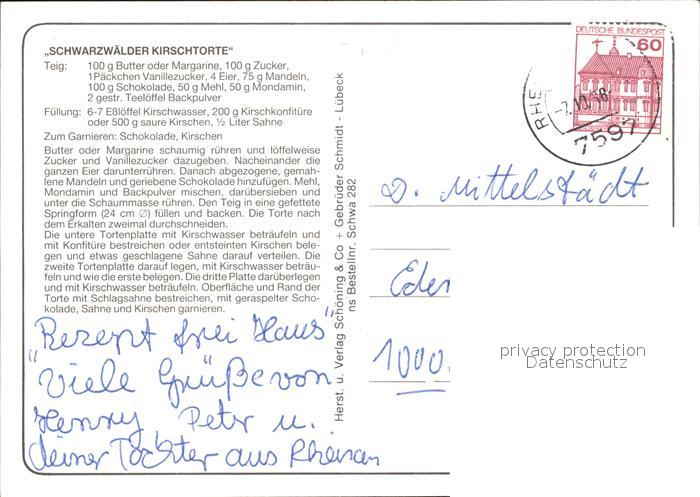 „SCHWARZWÄLDER KIRSCHTORTE“
Teig: 100 g Butter oder Margarine, 100 g Zucker,
1Päckchen Vanillezucker, 4 Eier, 75 g Mandeln,
100 g Schokolade, 50 g Mehl, 50 g Mondamin,
2 gestr. Teelöffel Backpulver
Füllung: 6-7 Eßlöffel Kirschwasser, 200 g Kirschkonfitüre
oder 500 g saure Kirschen, ½ Liter Sahne
Zum Garnieren: Schokolade, Kirschen
Butter oder Margarine schaumig rühren und löffelweise
Zucker und Vanillezucker dazugeben. Nacheinander die
ganzen Eier darunterrühren. Danach abgezogene, gemah-
lene Mandeln und geriebene Schokolade hinzufügen. Mehl,
Mondamin und Backpulver mischen, darübersieben und
unter die Schaummasse rühren. Den Teig in eine gefettete
Springform (24 cm ∅) füllen und backen. Die Torte nach
dem Erkalten zweimal durchschneiden.
Die untere Tortenplatte mit Kirschwasser beträufeln und
mit Konfitüre bestreichen oder entsteinten Kirschen bele-
gen und etwas geschlagene Sahne darauf verteilen. Die
zweite Tortenplatte darauf legen, mit Kirschwasser beträu-
feln und wie die erste belegen. Die dritte Platte darüberlegen
und mit Kirschwasser beträufeln. Oberfläche und Rand der
Torte mit Schlagsahne bestreichen, mit geraspelter Scho-
kolade, Sahne und Kirschen garnieren.
„Rezept frei Haus“
Viele Grüße von
Henny Peter u.
deiner Tochter aus Rheinau
Herst. u. Verlag Schöning & Co + Gebrüder Schmidt - Lübeck
ns Bestellnr. Schwa 282
DEUTSCHE BUNDESPOST
60
RHE
7597
D. Mittelstädt
Eden
1000
privacy protection
Datenschutz